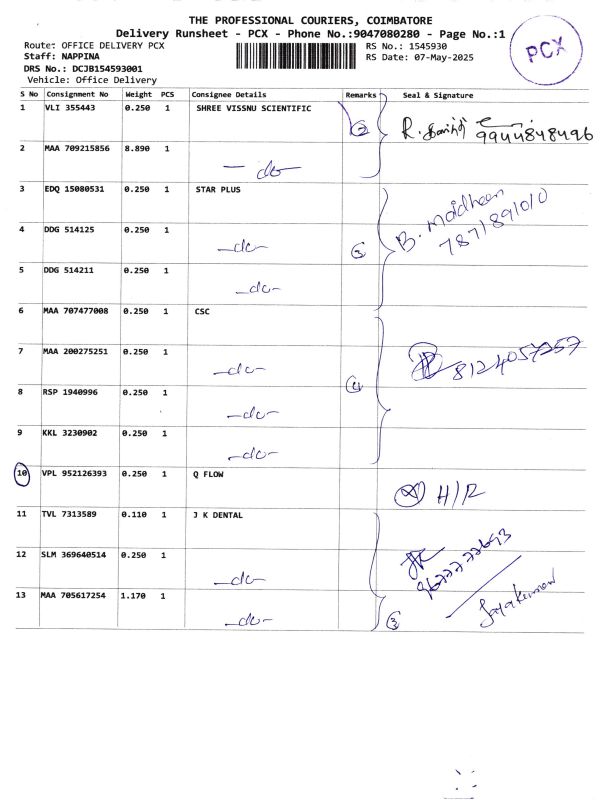 THE PROFESSIONAL COURIERS, COIMBATORE
Delivery Runsheet - PCX - Phone No.:9047080280 - Page No.:1
Route: OFFICE DELIVERY PCX
Staff: NAPPINA
DRS No.: DCJB154593001
Vehicle: Office Delivery
RS No.: 1545930
RS Date: 07-May-2025
PCX
S No Consignment No Weight PCS Consignee Details Remarks Seal & Signature
1 VLI 355443 0.250 1 SHREE VISSNU SCIENTIFIC
2 R. 9944848496
2 MAA 709215856 8.890 1 -do-
3 EDQ 15080531 0.250 1 STAR PLUS
B. Moidheen
7871891010
4 DDG 514125 0.250 1 -do- 3
5 DDG 514211 0.250 1 -do-
6 MAA 707477008 0.250 1 CSC
7 MAA 200275251 0.250 1 -do- 4 8124057257
8 RSP 1940996 0.250 1 -do-
9 KKL 3230902 0.250 1 -do-
10 VPL 952126393 0.250 1 Q FLOW H/R
11 TVL 7313589 0.110 1 J K DENTAL
12 SLM 369640514 0.250 1 -do-
13 MAA 705617254 1.170 1 -do- 3 Jayakumar